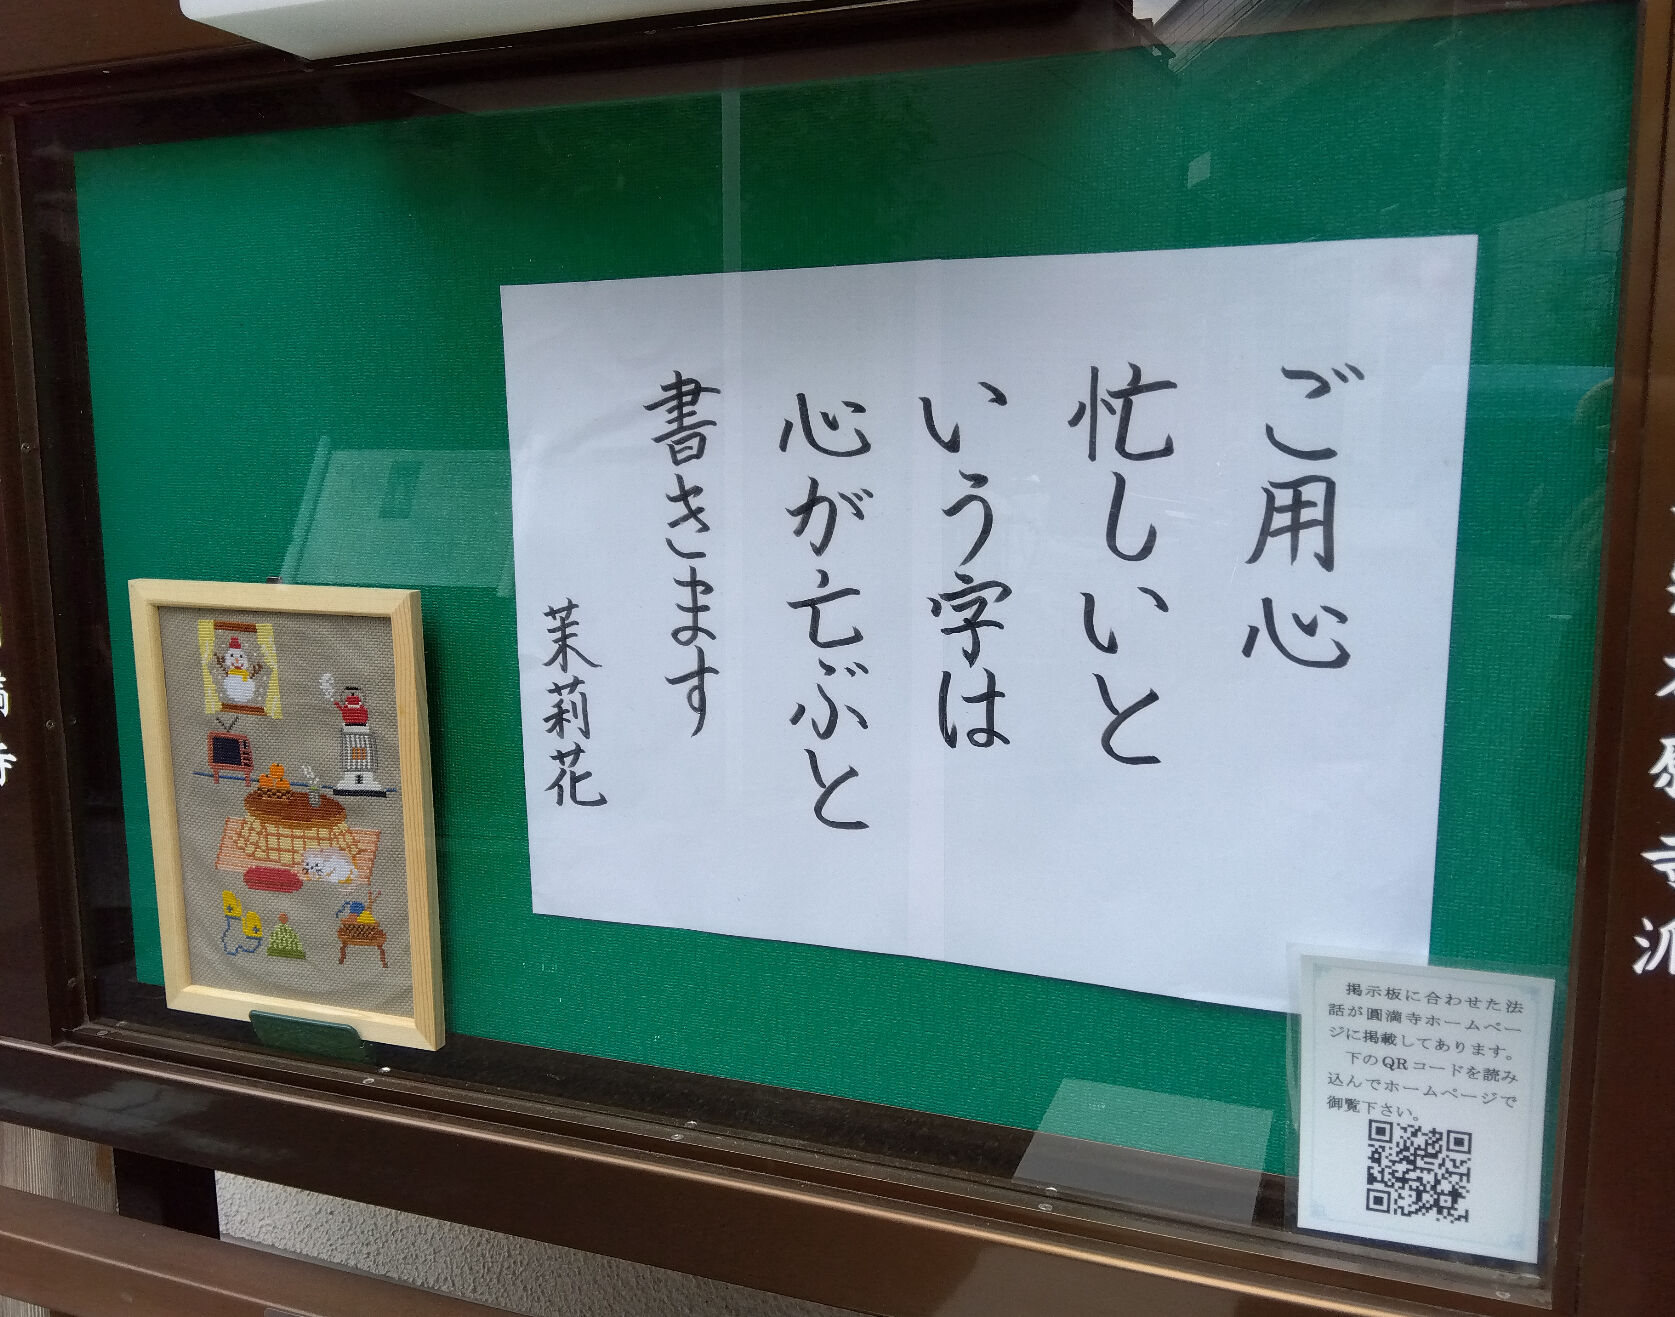 ご用心
忙しいと
いう字は
心が亡ぶと
書きます
茉莉花
掲示板に合わせた法
話が圓満寺ホームペー
ジに掲載してあります。
下のQRコードを読み
込んでホームページで
御覧下さい。
本願寺派
満寺